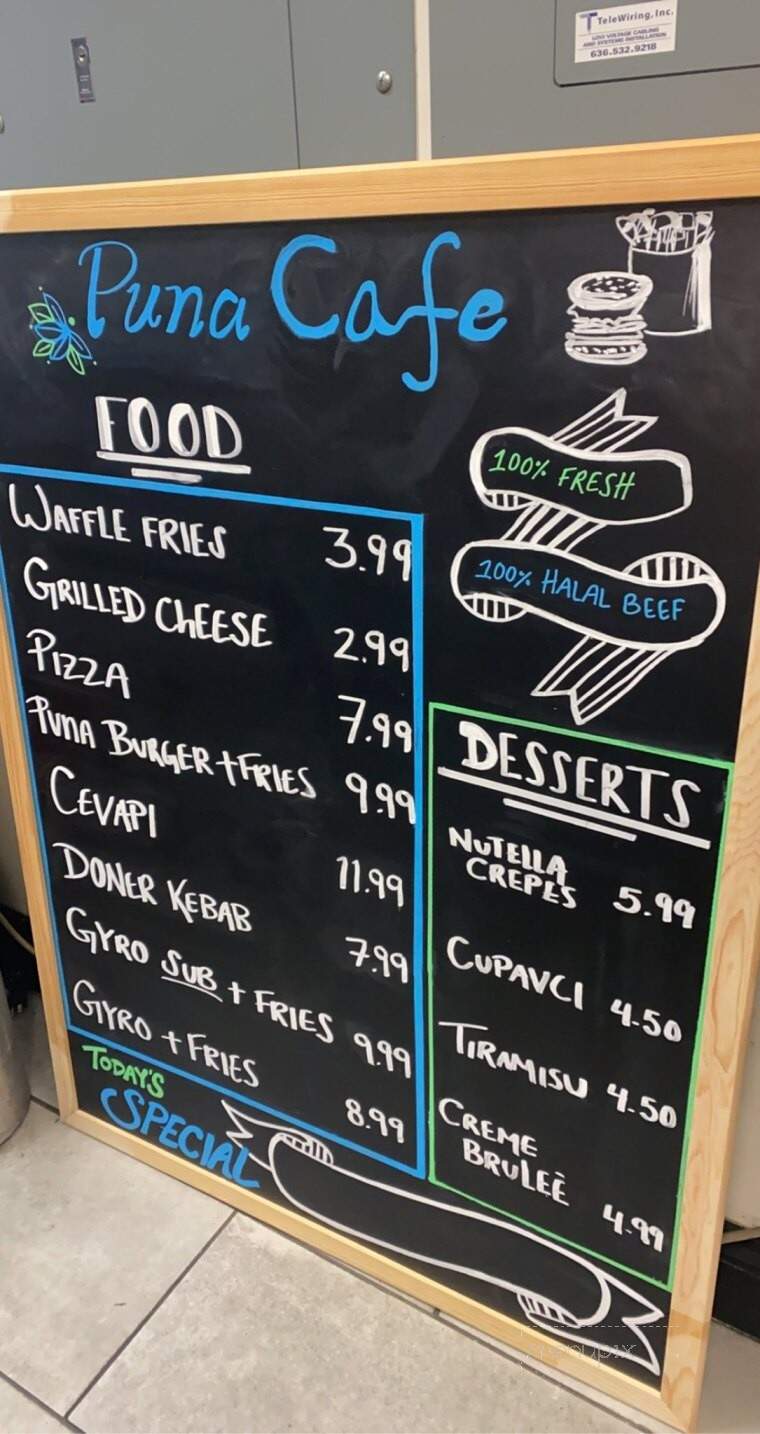 TeleWiring, Inc.
LOW VOLTAGE CABLING
AND SYSTEMS INSTALLATION
636.532.9218
Puna Cafe
FOOD
WAFFLE FRIES 3.99
GRILLED CHEESE 2.99
PIZZA 7.99
PUNA BURGER + FRIES 9.99
CEVAPI 11.99
DONER KEBAB 7.99
GYRO SUB + FRIES 9.99
GYRO + FRIES 8.99
100% FRESH
100% HALAL BEEF
DESSERTS
NUTELLA
CREPES 5.99
CUPAVCI 4.50
TIRAMISU 4.50
CREME
BRULEĒ 4.99
TODAY'S
SPECIAL